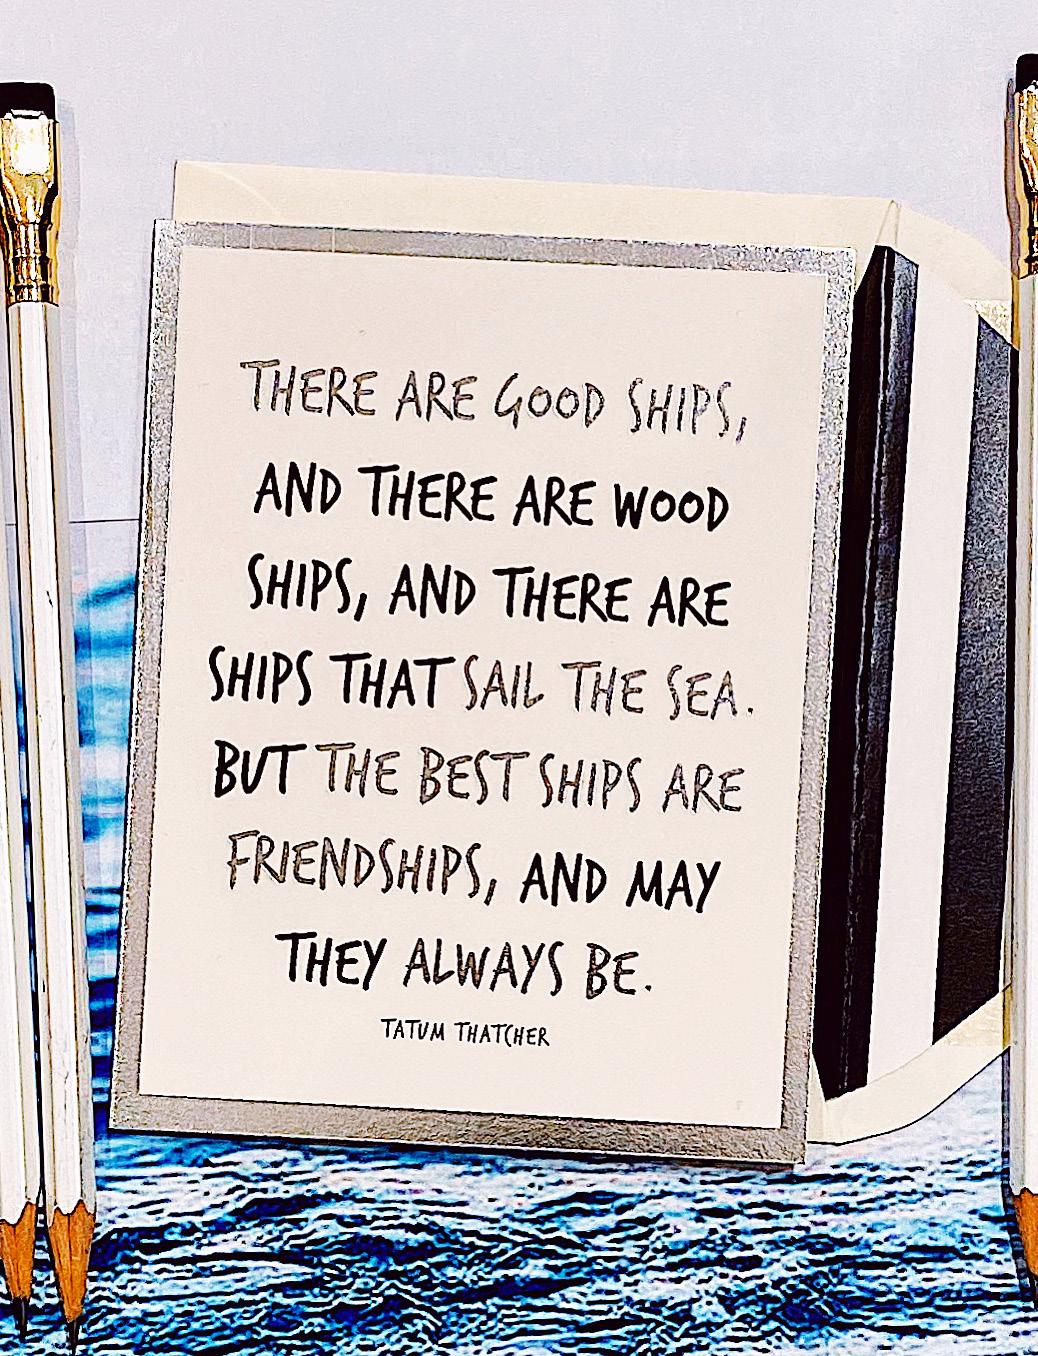 THERE ARE GOOD SHIPS,
AND THERE ARE WOOD
SHIPS, AND THERE ARE
SHIPS THAT SAIL THE SEA.
BUT THE BEST SHIPS ARE
FRIENDSHIPS, AND MAY
THEY ALWAYS BE.
TATUM THATCHER